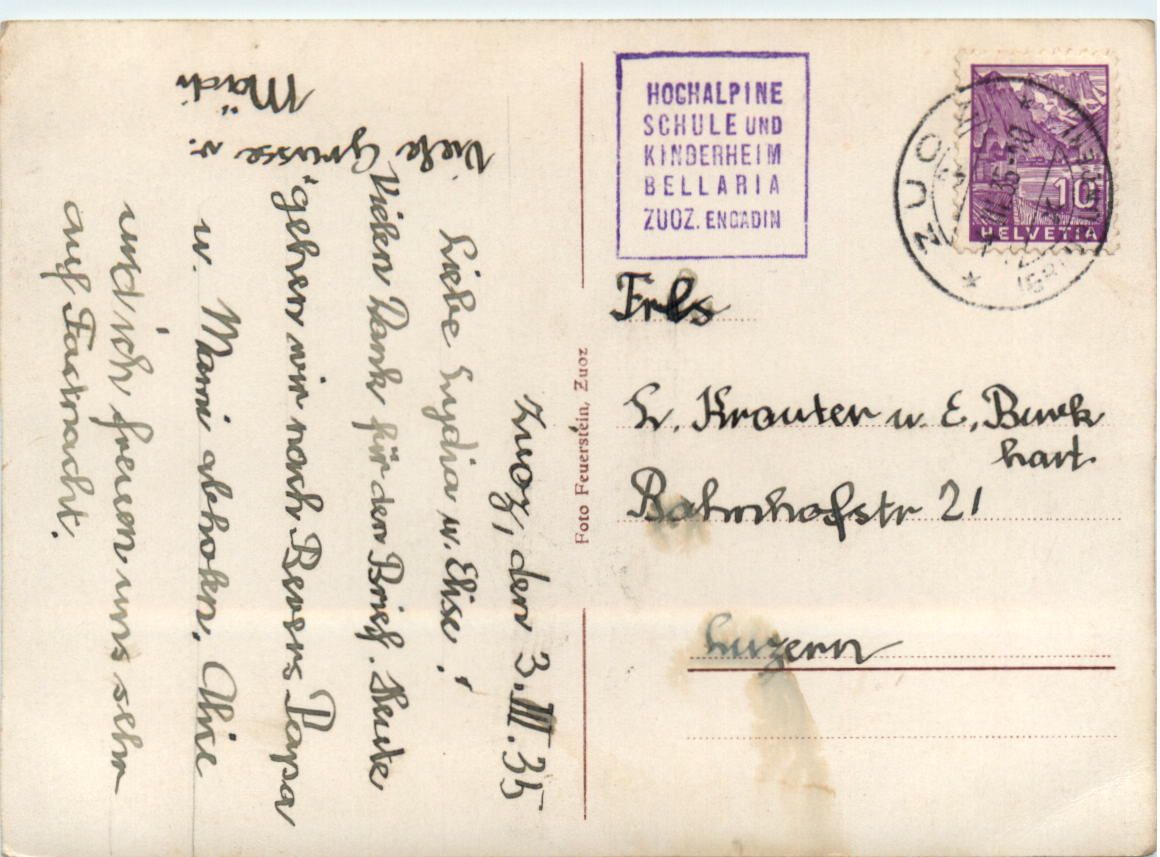 Zuoz, den 3. III. 35
Liebe Lydia u. Elise!
Vielen Dank für den Brief. Heute
gehen wir nach Bevers Papa
u. Mami abholen. Ulrie
und ich freuen uns sehr
auf Fastnacht.
Viele Grüsse v.
Mädi
Foto Feuerstein, Zuoz
HOCHALPINE
SCHULE UND
KINDERHEIM
BELLARIA
ZUOZ. ENGADIN
ZUOZ
10
HELVETIA
Frls
L. Krauter u. E. Burk
hart
Bahnhofstr 21
Luzern